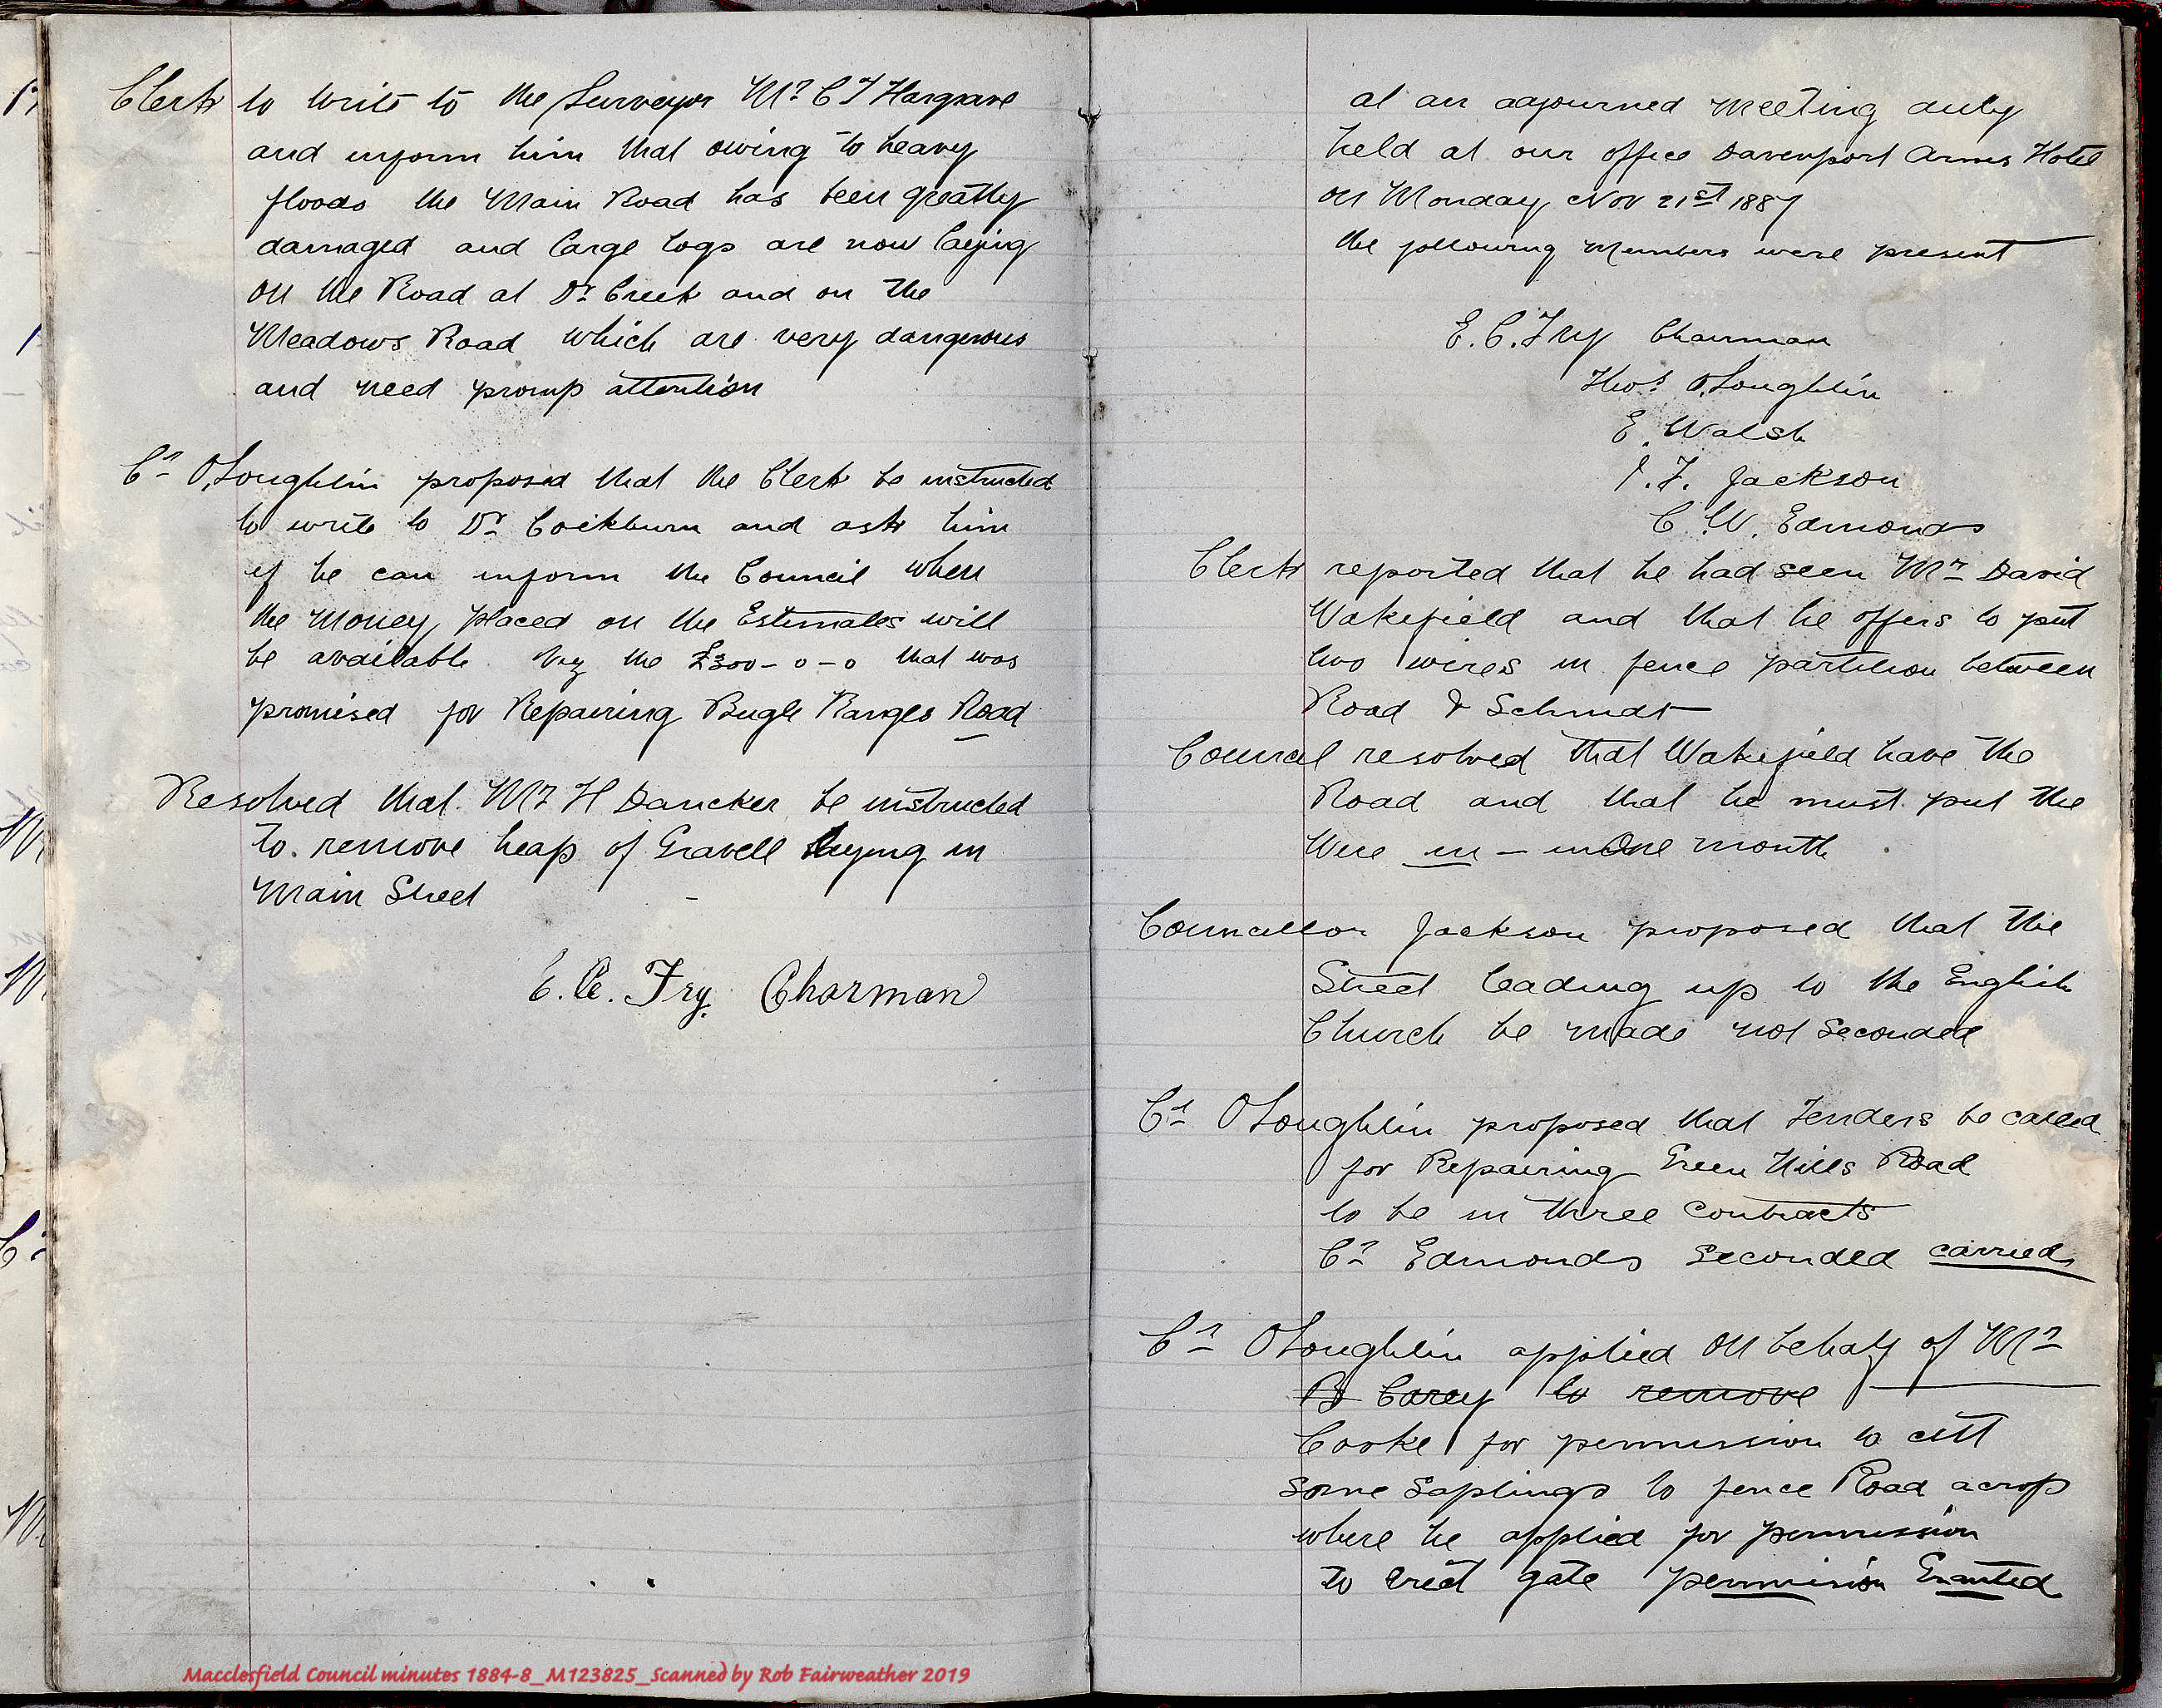 Clerk to write to the Surveyor Mr C T Hargrave
and inform him that owing to heavy
floods the Main Road has been greatly
damaged and large logs are now laying
on the Road at Dr Creek and on the
Meadows Road which are very dangerous
and need promp attention
Cr O'Loughlin proposed that the Clerk be instructed
to write to Dr Cockburn and ask him
if he can inform the Council when
the Money placed on the Estimates will
be available viz the £300-0-0 that was
promised for Repairing Bugle Ranges Road
Resolved that Mr H Dancker be instructed
to remove heap of Gravell laying in
Main Street
E. C. Fry. Charman
at an adjourned meeting duly
held at our office Davenport Arms Hotel
on Monday Nov 21st 1887
the following Members were present
E. C. Fry Chairman
Thos O'Loughlin
E. Walsh
J. F. Jackson
C. W. Edmonds
Clerk reported that he had seen Mr David
Wakefield and that he offers to put
two wires in fence partition between
Road & Schmidt
Council resolved that Wakefield have the
Road and that he must put the
Wire in - in One month
Councillor Jackson proposed that the
Street leading up to the English
Church be made not Seconded
Cr O'Loughlin proposed that Tenders be called
for Repairing Green Hills Road
to be in three Contracts
Cr Edmonds Seconded carried
Cr O'Loughlin applied on behalf of Mr
B Carey to remove
Cooke for permission to cut
some Saplings to fence Road across
where he applied for permission
to erect gate permission Granted
Macclesfield Council minutes 1884-8_M123825_Scanned by Rob Fairweather 2019